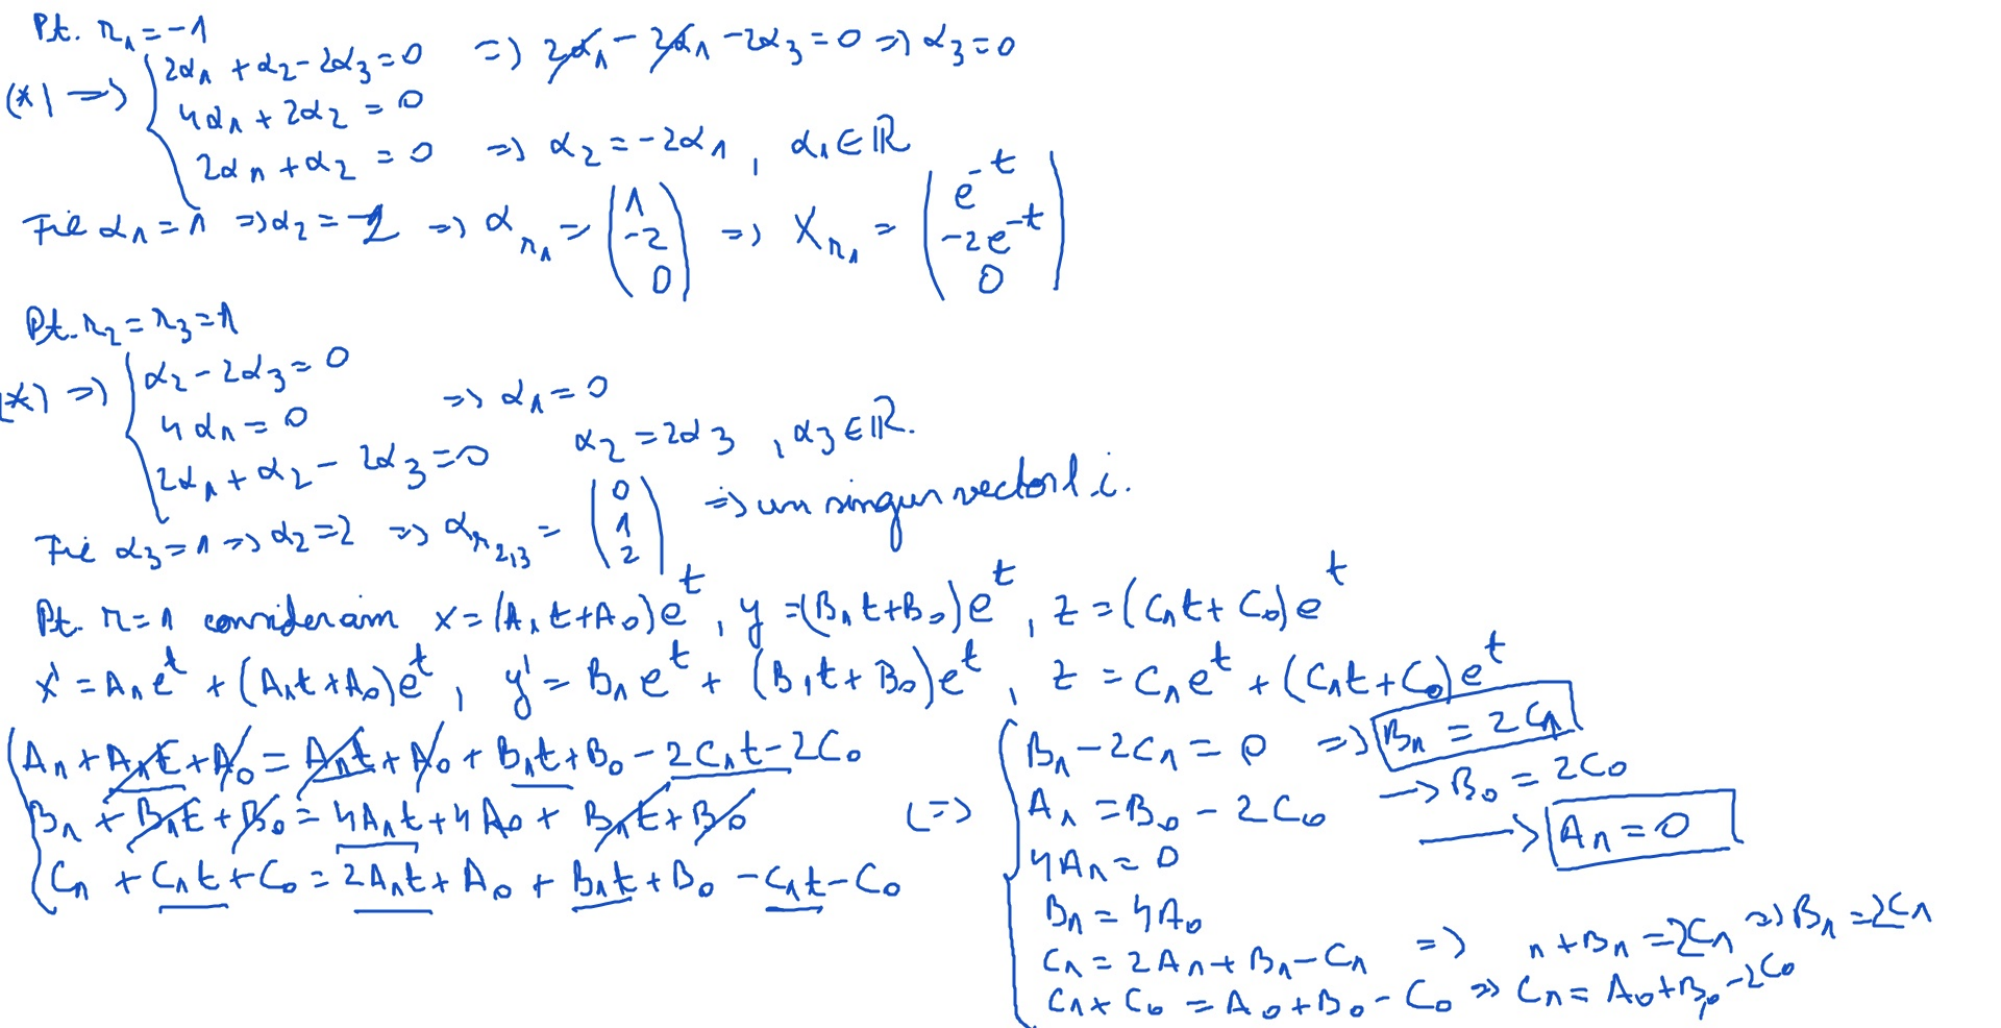 Pt. r₁ = -1
(*) => { 2α₁ + α₂ - 2α₃ = 0 => 2α₁ - 2α₁ - 2α₃ = 0 => α₃ = 0
4α₁ + 2α₂ = 0
2α₁ + α₂ = 0 => α₂ = -2α₁, α₁ ∈ ℝ
Fie α₁ = 1 => α₂ = -2 => α_r₁ = (1 -2 0) => X_r₁ = (e^-t -2e^-t 0)
Pt. r₂ = r₃ = 1
(*) => { α₂ - 2α₃ = 0
4α₁ = 0 => α₁ = 0
2α₁ + α₂ - 2α₃ = 0 α₂ = 2α₃, α₃ ∈ ℝ.
Fie α₃ = 1 => α₂ = 2 => α_r₂,₃ = (0 1 2) => un singur vector l.i.
Pt. r = 1 consideram x = (A₁t + A₀)e^t, y = (B₁t + B₀)e^t, z = (C₁t + C₀)e^t
x' = A₁e^t + (A₁t + A₀)e^t, y' = B₁e^t + (B₁t + B₀)e^t, z = C₁e^t + (C₁t + C₀)e^t
{ A₁ + A₁t + A₀ = A₁t + A₀ + B₁t + B₀ - 2C₁t - 2C₀
B₁ + B₁t + B₀ = 4A₁t + 4A₀ + B₁t + B₀
C₁ + C₁t + C₀ = 2A₁t + A₀ + B₁t + B₀ - C₁t - C₀
<=> { B₁ - 2C₁ = 0 => B₁ = 2C₁
A₁ = B₀ - 2C₀ -> B₀ = 2C₀
4A₁ = 0 -> A₁ = 0
B₁ = 4A₀
C₁ = 2A₁ + B₁ - C₁ => 1 + B₁ = 2C₁ => B₁ = 2C₁
C₁ + C₀ = A₀ + B₀ - C₀ => C₁ = A₀ + B₀ - 2C₀